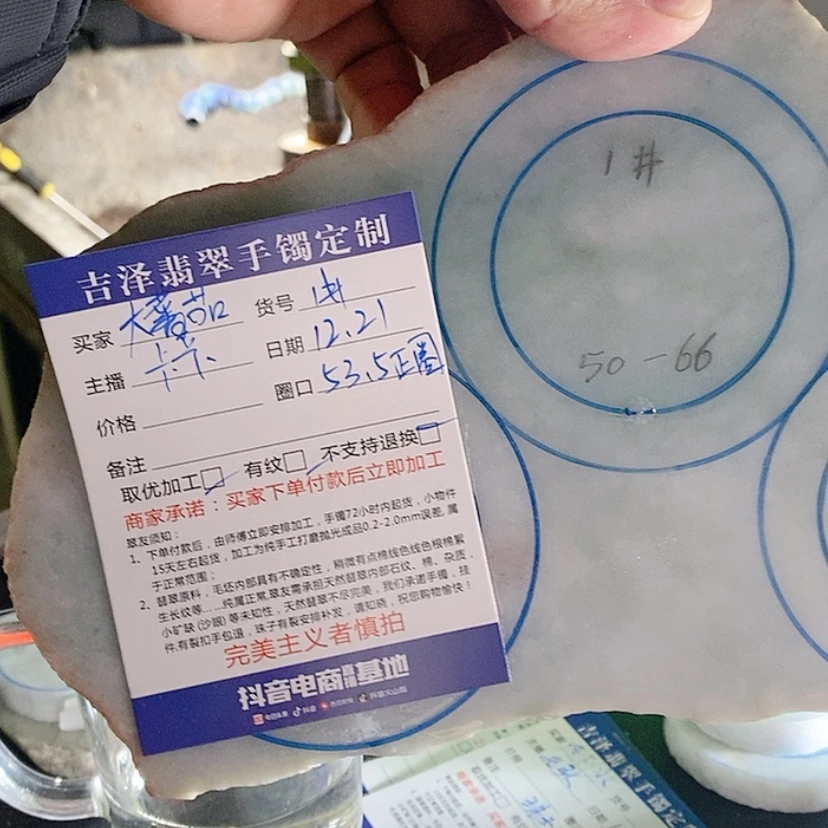 吉泽翡翠手镯定制
买家 大番茄 货号 1#
主播 卡卡 日期 12.21
价格 圈口 53.5正圈
备注
取优加工 有纹 不支持退换
商家承诺：买家下单付款后立即加工
翠友须知：
1、下单付款后，由师傅立即安排加工，手镯72小时内起货，小物件
15天左右起货，加工为纯手工打磨抛光成品0.2-2.0mm误差，属
于正常范围；
2、翡翠原料，毛坯内部具有不确定性，稍微有点棉线色线色根棉絮
生长纹等……纯属正常，翠友需承担天然翡翠内部石纹、棉、杂质，
小矿缺(沙眼)等未知性，天然翡翠不尽完美，我们承诺手镯，挂
件，有裂扣手包退，珠子有裂安排补发，请知晓，祝您购物愉快！
完美主义者慎拍
抖音电商直播基地
今日头条 抖音 抖音火山版
1#
50-66
吉泽翡翠手镯定
买家
主播
价格
备注
货号